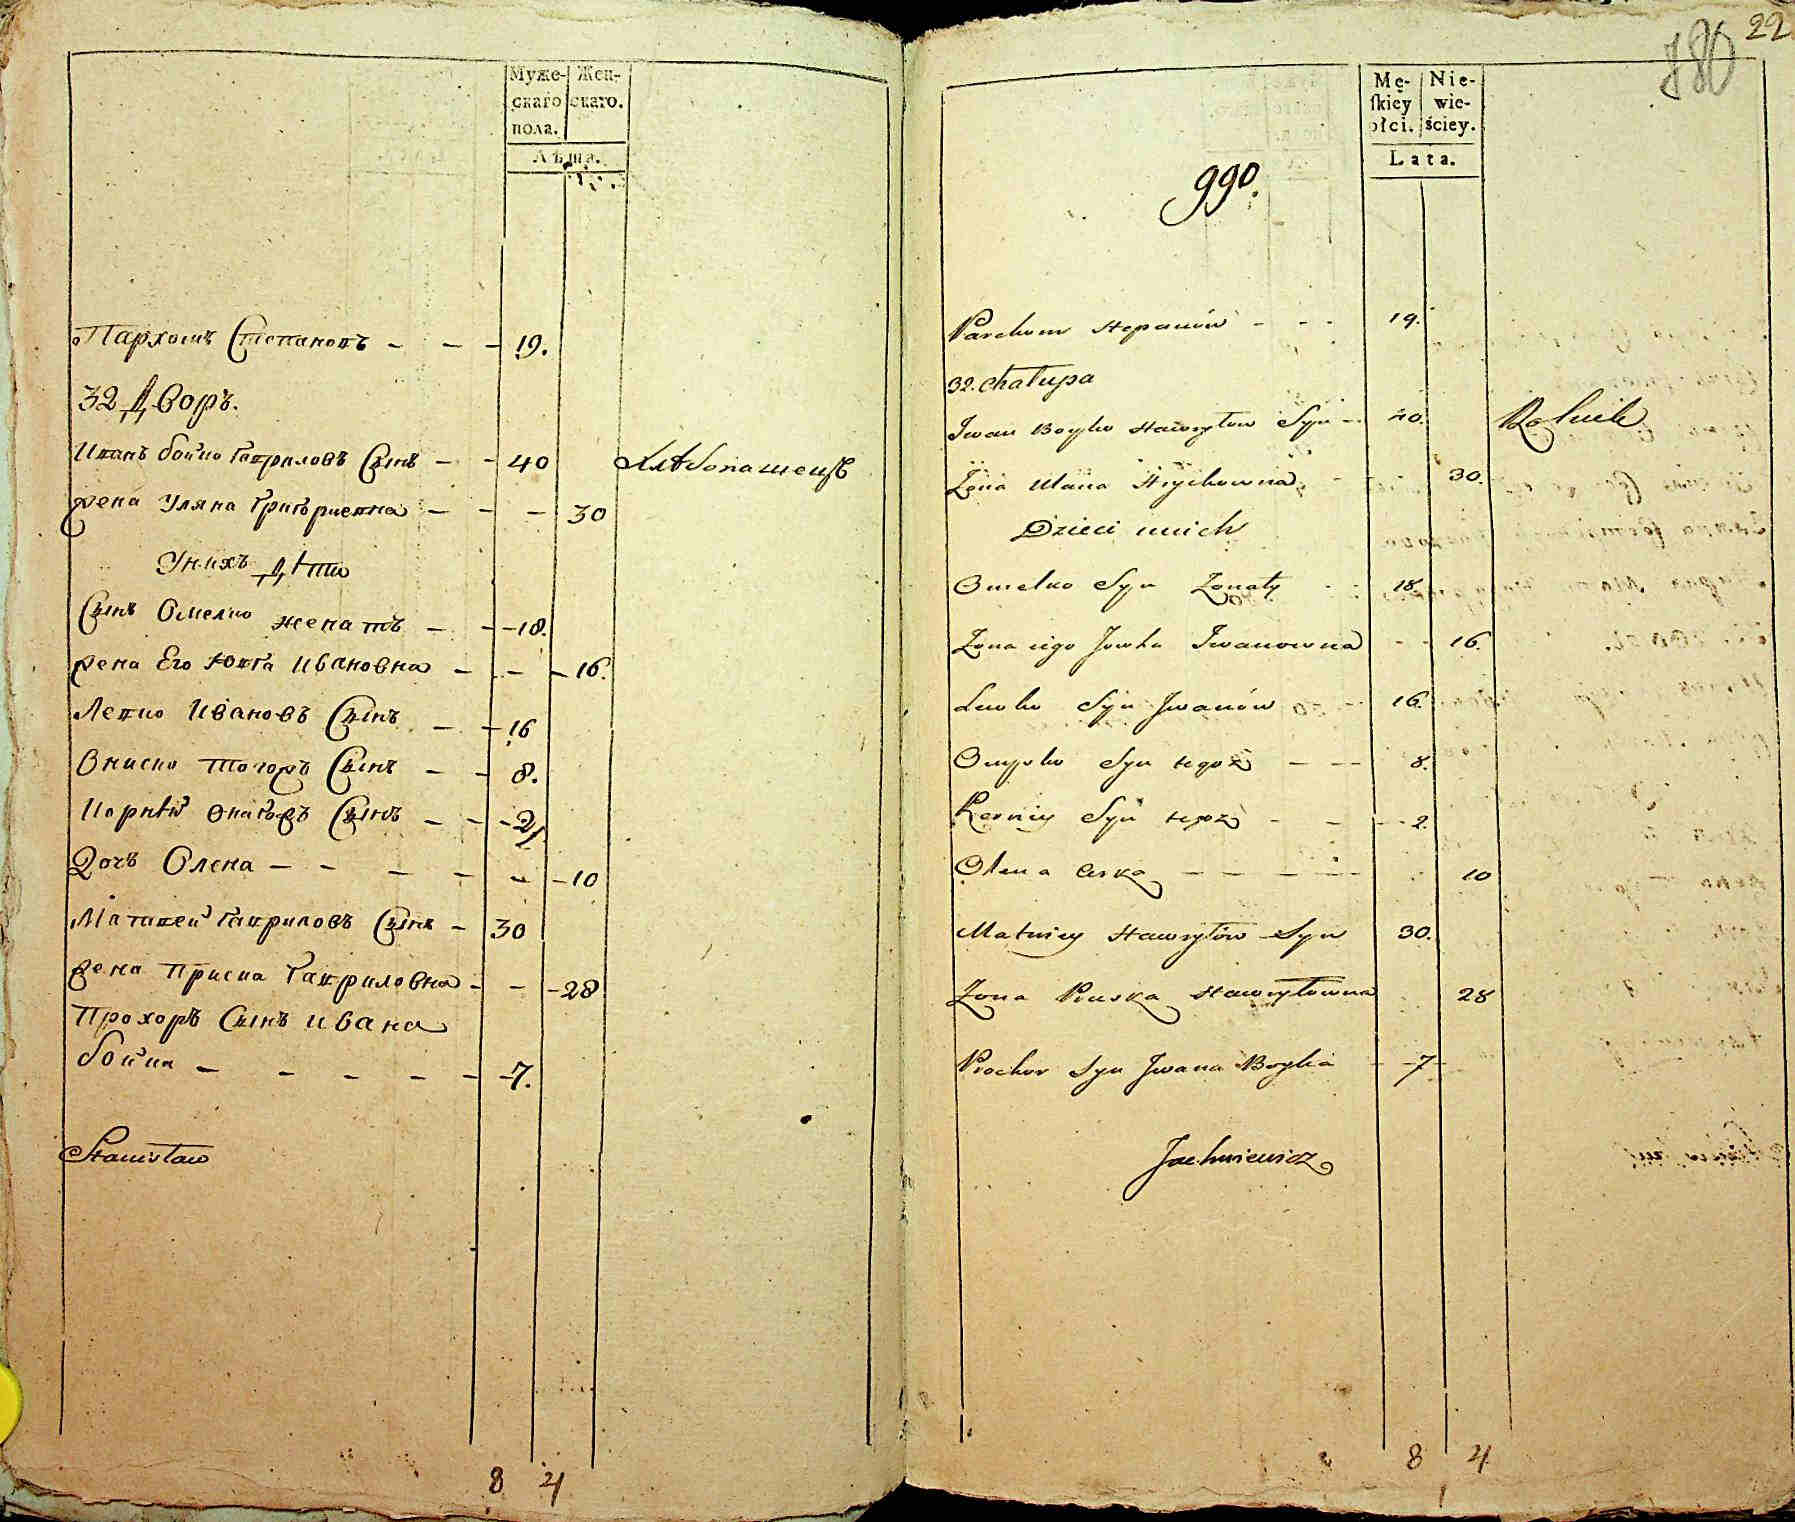 Муже- Жен-
скаго скаго.
пола.
Лѣта.
Пархомъ Степановъ - - - 19.
32 Дворъ.
Иванъ бойко гавриловъ Сынъ - - 40 Хлѣбопашецъ
жена Уляна Григориевна - - - 30
Унихъ дѣти
Сынъ Омелко женатъ - - - 18.
жена Его Ювга Ивановна - - - 16.
Левко Ивановъ Сынъ - - 16
Ониско тогожъ Сынъ - - 8.
Корнѣй Онагожъ Сынъ - - - 2
Дочъ Олена - - - - - - 10
Матвеи гавриловъ Сынъ - 30
жена Приска Гавриловна - - - 28
Прохоръ Сынъ Ивана
бойка - - - - - - 7.
Stanisław
8 4
22
780
Mę- Nie-
skiey wie-
płci. ściey.
Lata.
990.
Parchom Stepanów - - - 19.
32. Chałupa
Iwan Boyko Hawryłow Syn - - 40. Rolnik
Żona Ulana Hryhowna 30.
Dzieci unich
Omelko Syn Żonaty 18
Żona iego Jowha Iwanowna - - 16.
Lewko Syn Iwanów 16.
Onysko Syn tegoż - - - 8.
Korniy Syn tegoż - - - - 2.
Olena Corka - - - - - - 10
Matwiey Hawryłów Syn 30.
Żona Pruska Hawryłowna 28
Prochor Syn Iwana Boyka - - 7 -
Jachniewicz
8 4